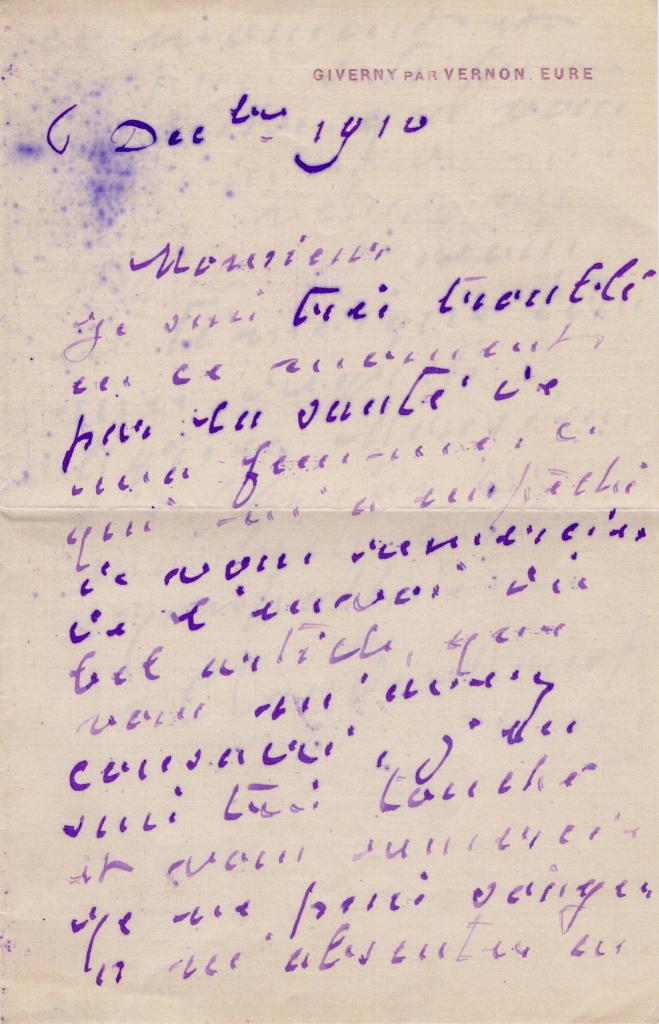 GIVERNY PAR VERNON. EURE
6 Dec bre 1910
Monsieur
je suis très troublé
en ce moment
par la santé de
ma femme, ce
qui m'a empêché
de vous remercier
de l'envoi du
bel article, que
vous m'avez
consacré, j'en
suis très touché
et vous remercie
je ne puis songer
à m'absenter en